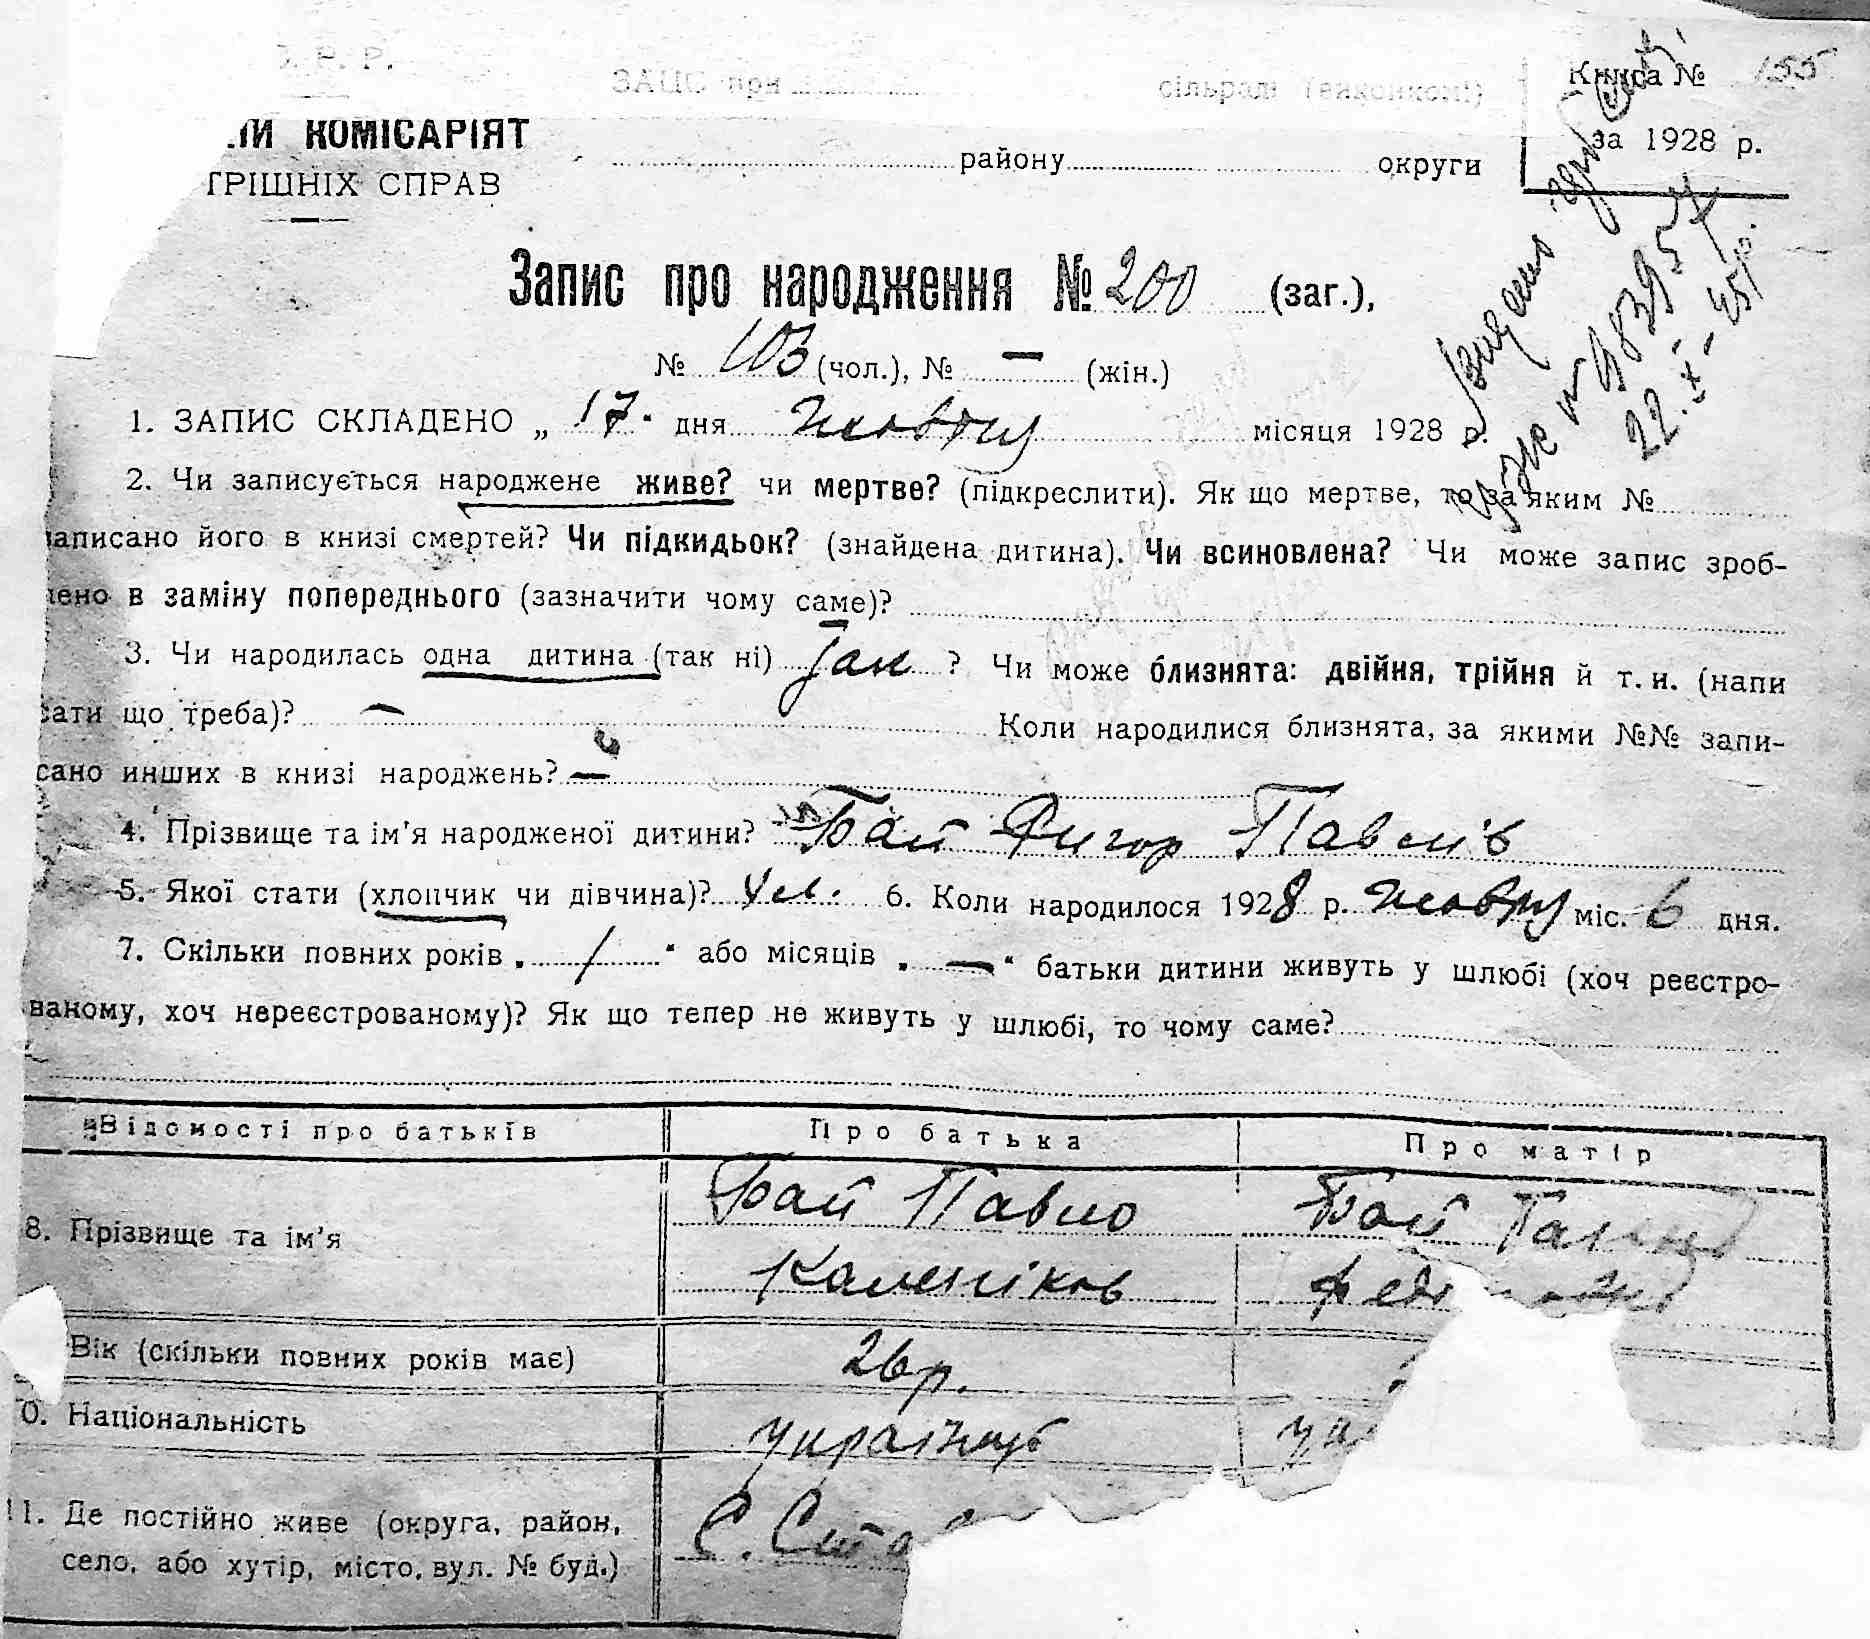 Р. Р.
ЗАЦС при сільраді (виконкомі)
Книга № 155
КОМІСАРІЯТ
району округи
за 1928 р.
ТРІШНІХ СПРАВ
22.X-45р.
Запис про народження № 200 (заг.),
№ 103 (чол.), № — (жін.)
1. ЗАПИС СКЛАДЕНО „ 17 " дня жовтня місяця 1928 р.
2. Чи записується народжене живе? чи мертве? (підкреслити). Як що мертве, то за яким №
записано його в книзі смертей? Чи підкидьок? (знайдена дитина). Чи всиновлена? Чи може запис зроб-
лено в заміну попереднього (зазначити чому саме)?
3. Чи народилась одна дитина (так ні) так ? Чи може близнята: двійня, трійня й т. и. (напи
сати що треба)? — Коли народилися близнята, за якими №№ запи-
сано инших в книзі народжень? —
4. Прізвище та ім'я народженої дитини? Бай Григор Павлів
5. Якої стати (хлопчик чи дівчина)? чл. 6. Коли народилося 1928 р. жовтня міс. 6 дня.
7. Скільки повних років „ 1 " або місяців „ — " батьки дитини живуть у шлюбі (хоч реєстро-
ваному, хоч нереєстрованому)? Як що тепер не живуть у шлюбі, то чому саме?
Відомості про батьків Про батька Про матір
8. Прізвище та ім'я Бай Павло Бай
Каленіков
Вік (скільки повних років має) 26 р.
0. Національність українець
11. Де постійно живе (округа, район, С.
село, або хутір, місто, вул. № буд.)